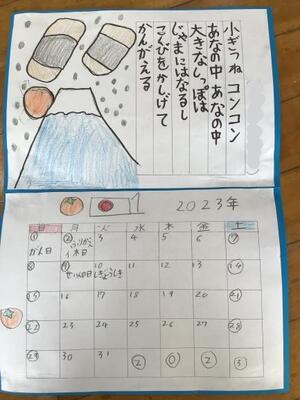 小ぎつね コンコン
あなの中 あなの中
大きなしっぽは
じゃまにはなるし
こくびをかしげて
かんがえる
1 2023年
日 月 火 水 木 金 土
1 2 3 4 5 6 7
がん日
8 9 10 11 12 13 14
15 16 17 18 19 20 21
22 23 24 25 26 27 28
29 30 31 2 0 2 3